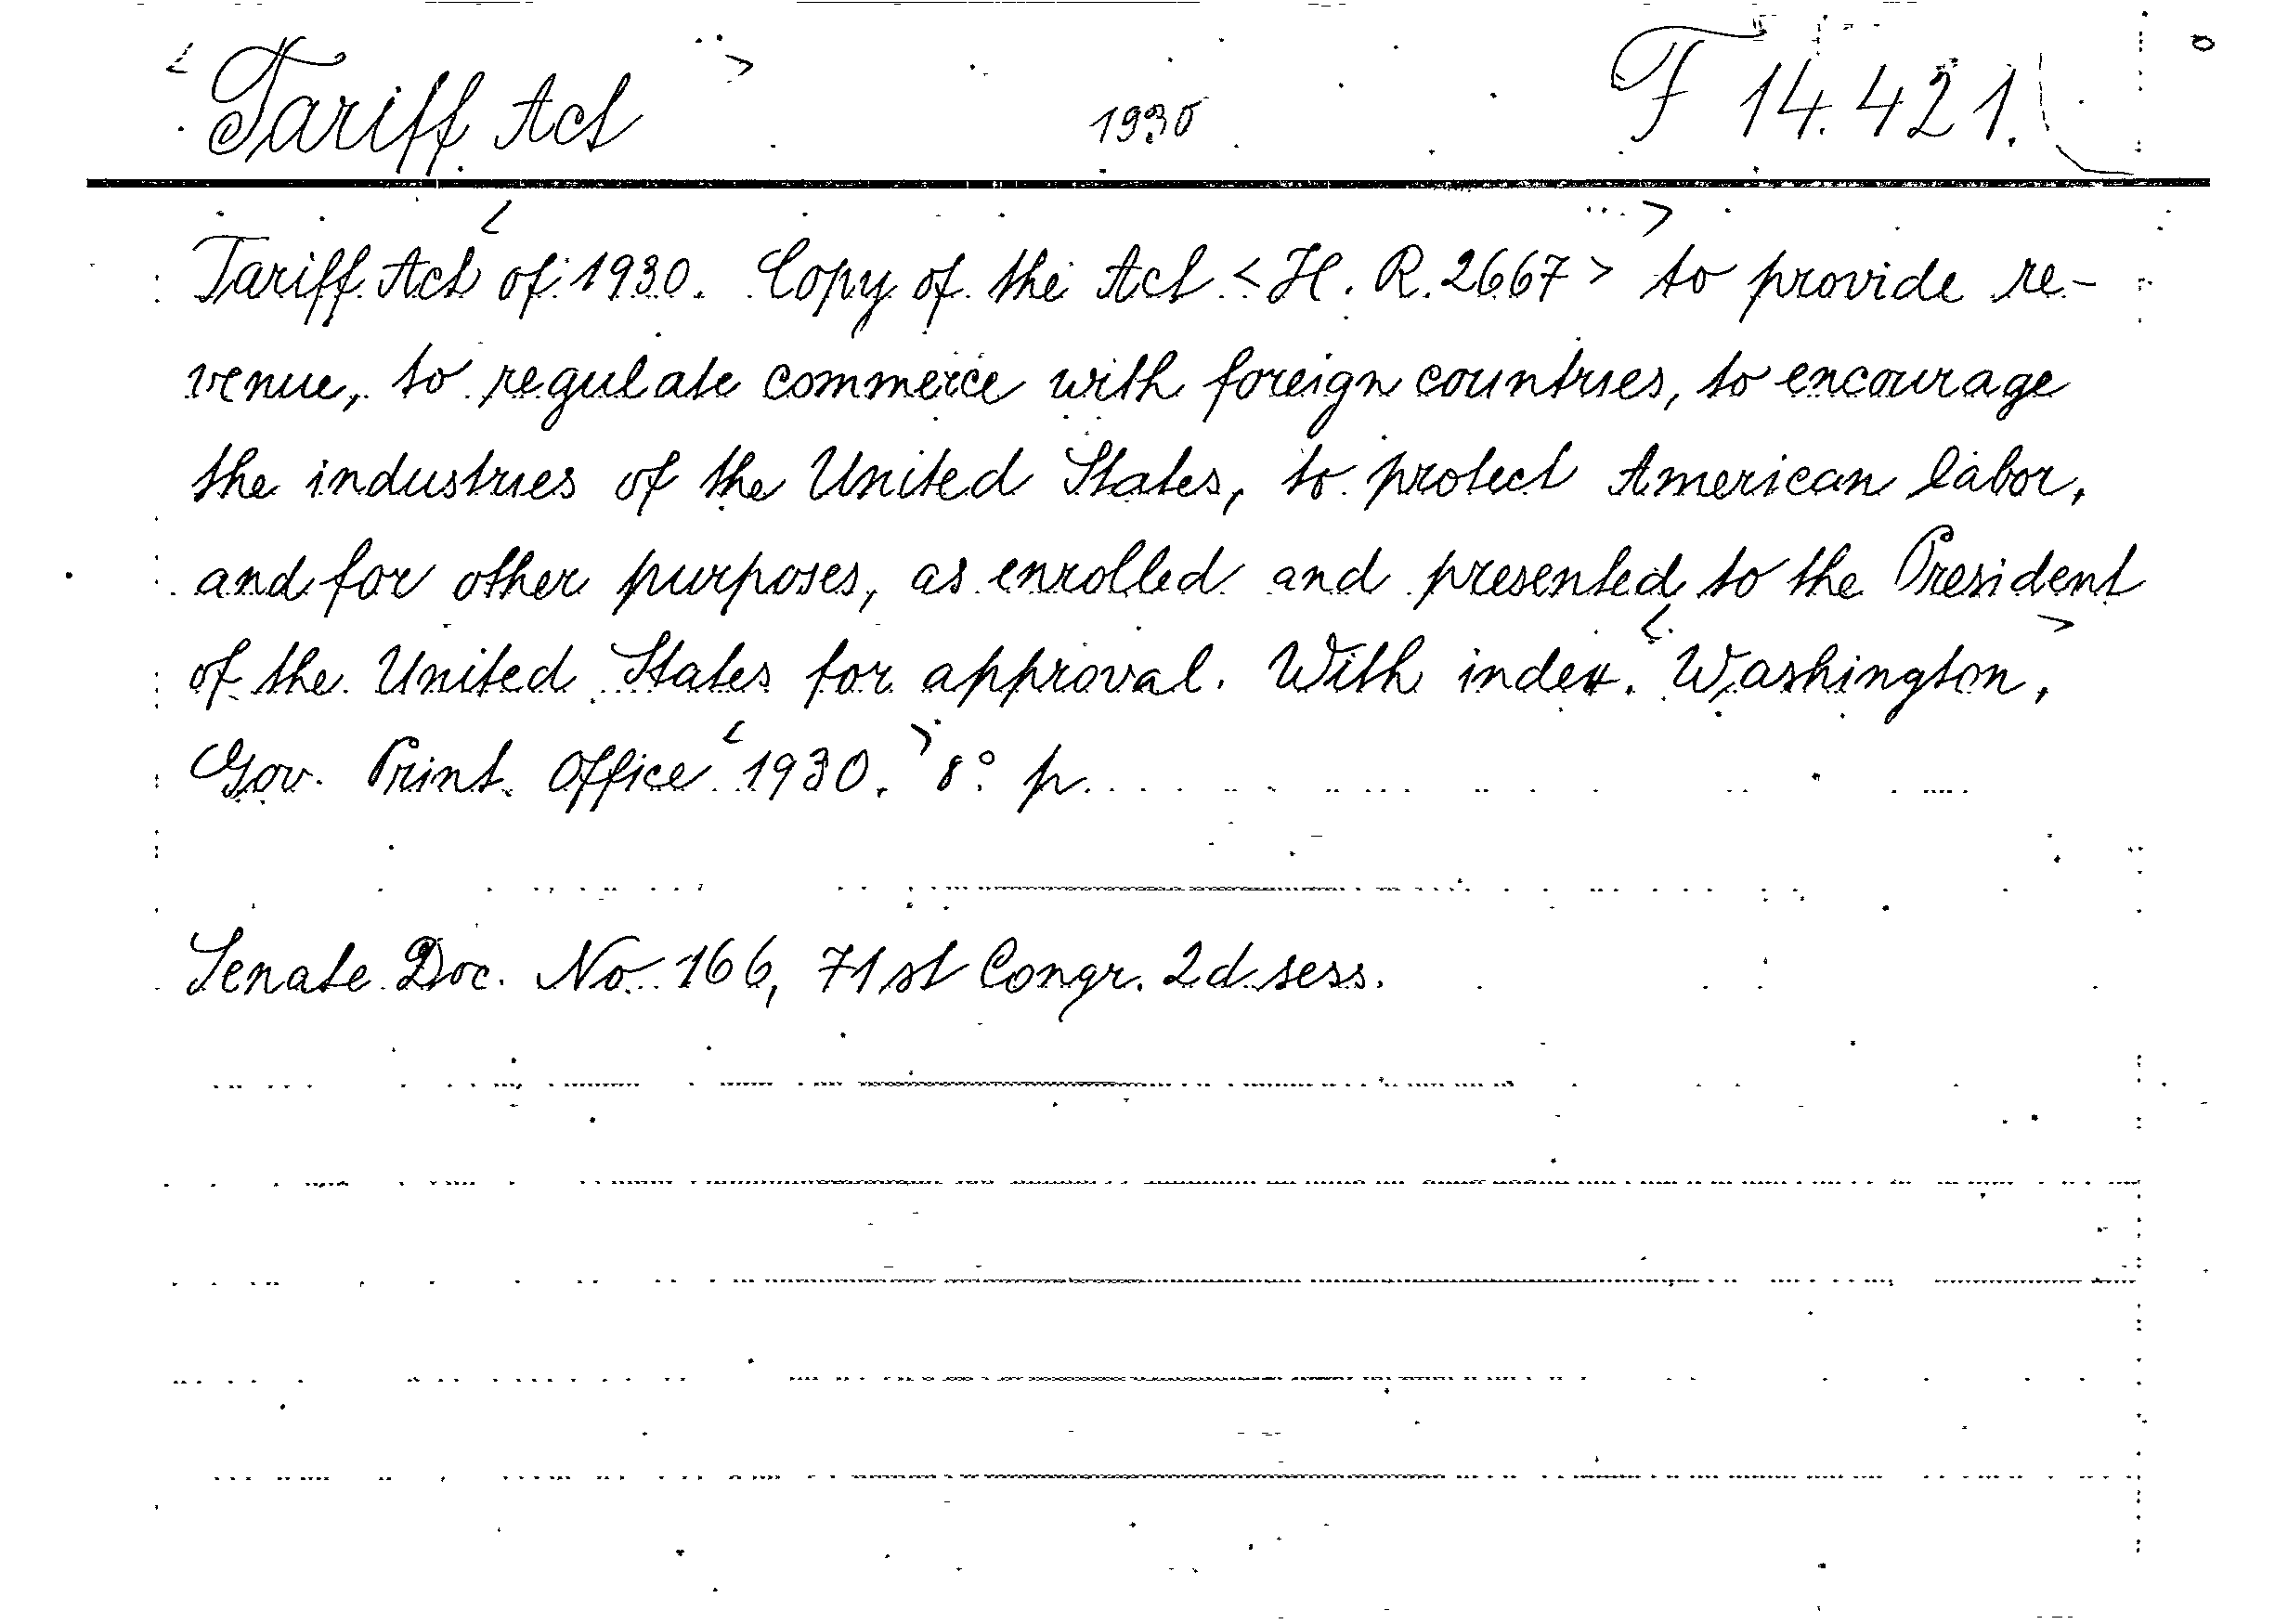 Tariff Act 1930 F 14.421.
Tariff Act of 1930. Copy of the Act <H. R. 2667> to provide re-
venue, to regulate commerce with foreign countries, to encourage
the industries of the United States, to protect American labor,
and for other purposes, as enrolled and presented to the President
of the United States for approval. With index. Washington,
Gov. Print. Office 1930. 8° p.
Senate Doc. No 166, 71st Congr. 2d sess.